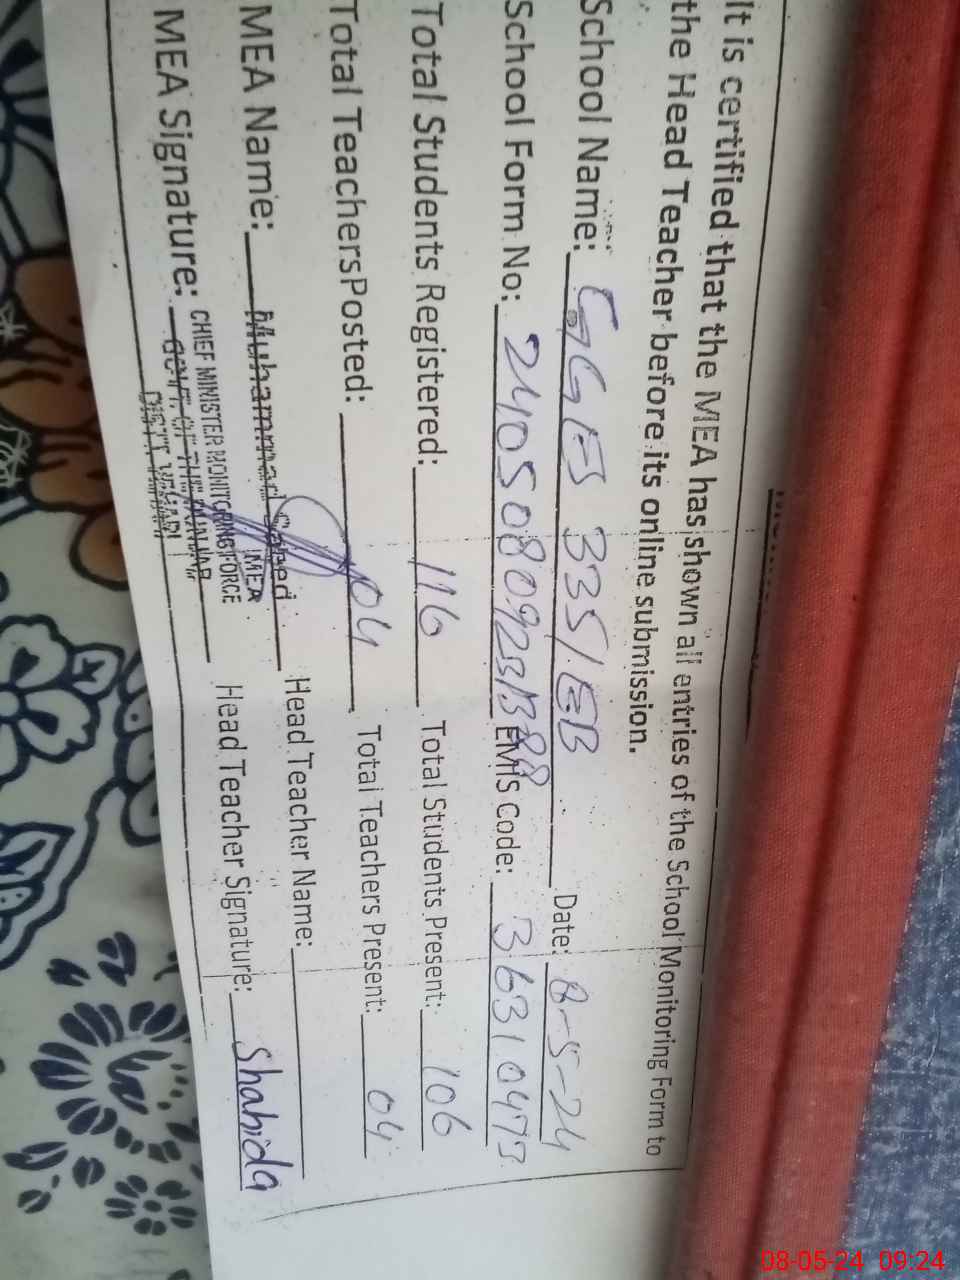 It is certified that the MEA has shown all entries of the School Monitoring Form to
the Head Teacher before its online submission.
School Name: GGES 335/EB Date: 8-5-24
School Form No: EMIS Code: 36310473
Total Students Registered: 116 Total Students Present: 106
Total TeachersPosted: 04 Total Teachers Present: 04
MEA Name: Muhammad Saeed Head Teacher Name:
MEA
MEA Signature: CHIEF MINISTER MONITORING FORCE Head Teacher Signature: Shahida
GOVT. OF THE PUNJAB
DISTT. VEHARI
08-05-24 09:24